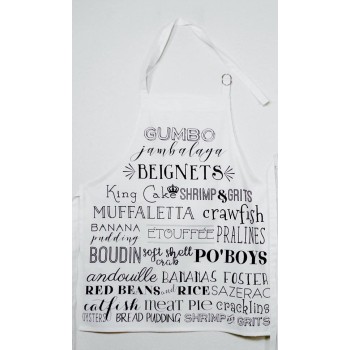 GUMBO
jambalaya
BEIGNETS
King Cake SHRIMP & GRITS
MUFFALETTA crawfish
BANANA pudding ÉTOUFFÉE PRALINES
BOUDIN soft shell crab PO'BOYS
andouille BANANAS FOSTER
RED BEANS and RICE SAZERAC
catfish meat pie cracklins
OYSTERS BREAD PUDDING SHRIMP & GRITS